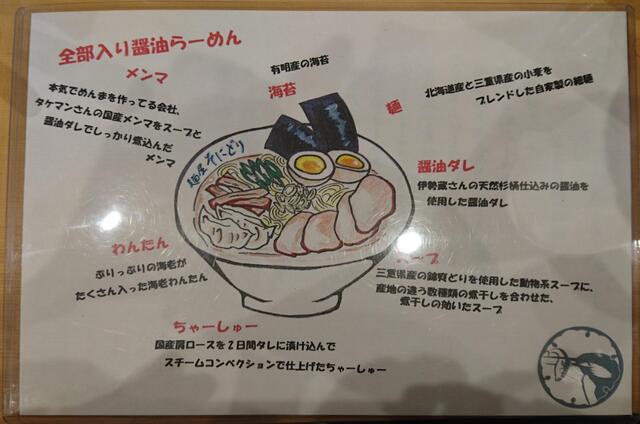 全部入り醤油らーめん
メンマ
本気でめんまを作ってる会社、
タケマンさんの国産メンマをスープと
醤油ダレでしっかり煮込んだ
メンマ
有明産の海苔
海苔
麺
北海道産と三重県産の小麦を
ブレンドした自家製の細麺
麺屋そにどり
醤油ダレ
伊勢蔵さんの天然杉桶仕込みの醤油を
使用した醤油ダレ
わんたん
ぷりっぷりの海老が
たくさん入った海老わんたん
スープ
三重県産の錦爽どりを使用した動物系スープに、
産地の違う数種類の煮干しを合わせた、
煮干しの効いたスープ
ちゃーしゅー
国産肩ロースを2日間タレに漬け込んで
スチームコンベクションで仕上げたちゃーしゅー